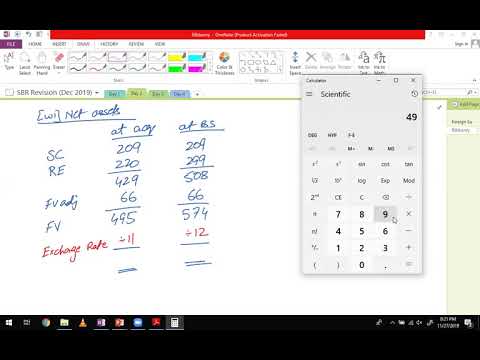 Bibitonny - OneNote (Product Activation Failed)
FILE HOME INSERT DRAW HISTORY REVIEW VIEW
Sign in
Type Panning Hand Eraser Lasso Select
Color & Thickness
Shapes
Insert Space Delete
Arrange Rotate
Ink to Text Ink to Math
Tools
SBR Revision (Dec 2019) Day 1 Day 2 Day 3 Day 4
Add Page
Calculator
Scientific
49
DEG HYP F-E
MC MR M+ M- MS
sin cos tan
10ˣ log Exp Mod
2ⁿᵈ CE C ÷
π 7 8 9 ×
n! 4 5 6 −
± 1 2 3 +
( ) 0 . =
[W1] Net assets
at acq at BS
SC 209 209
RE 220 299
429 508
FV adj 66 66
FV 495 574
Exchange Rate ÷11 ÷12
8:21 PM
11/27/2019